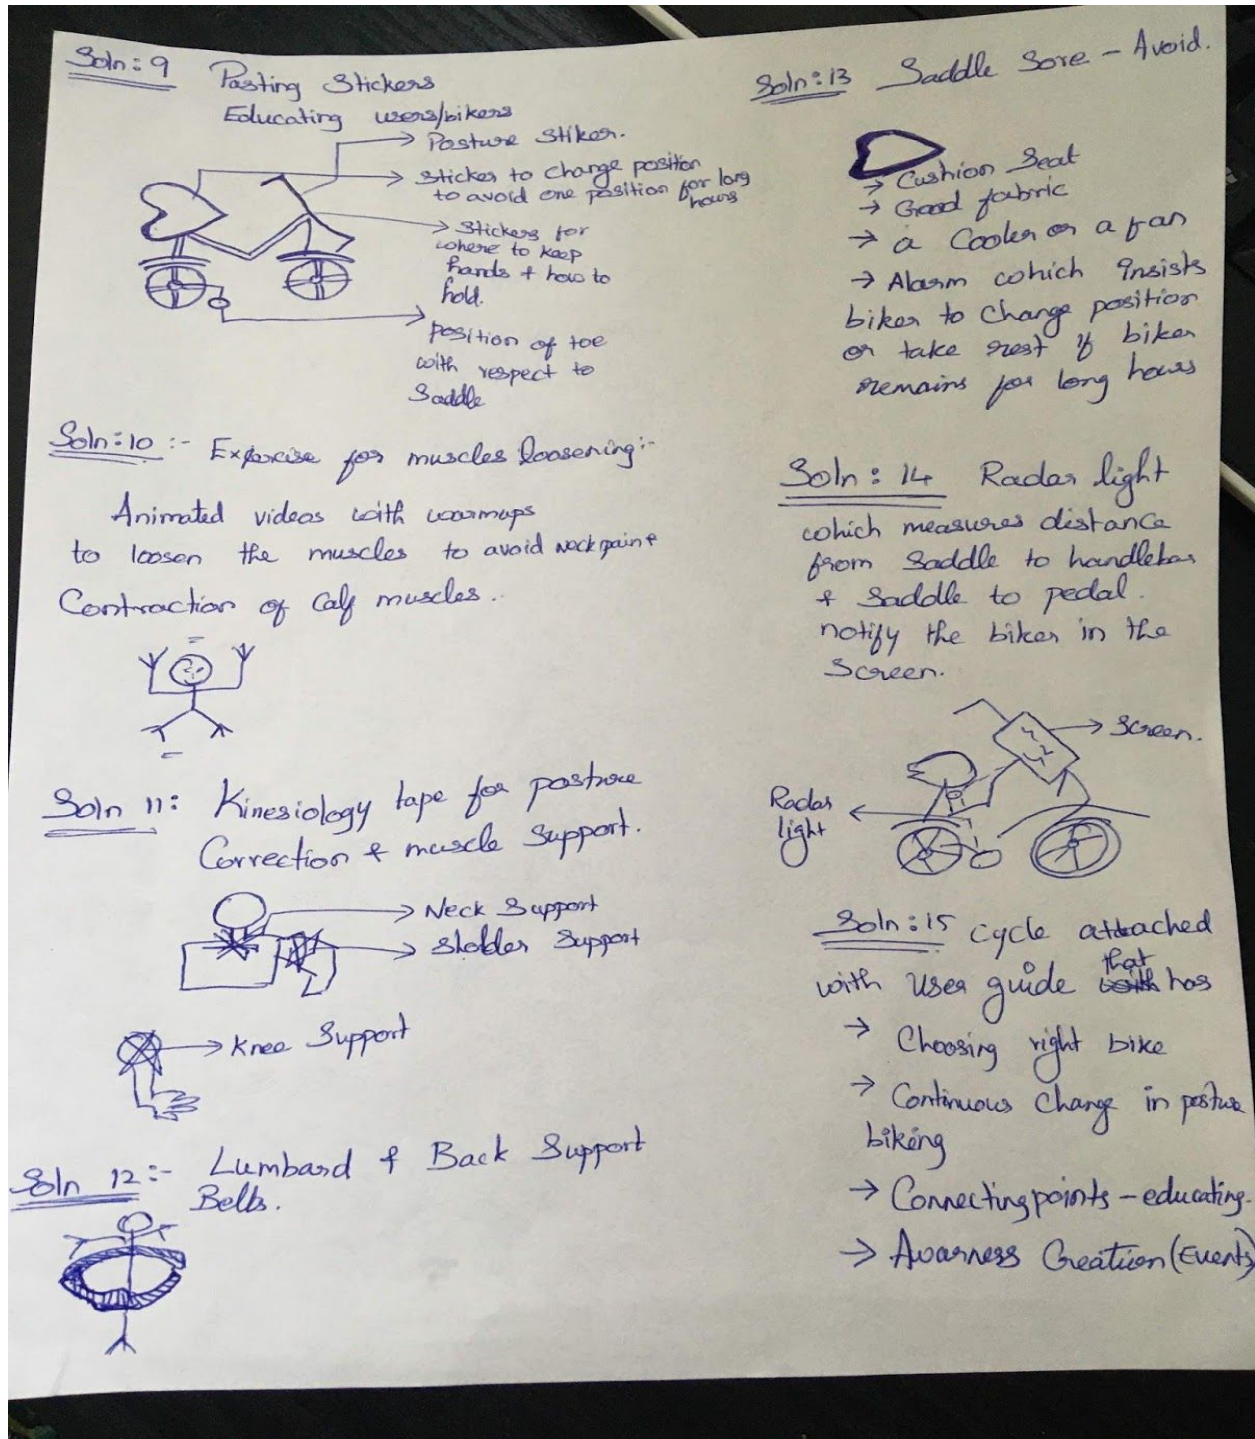 Soln: 9 Pasting Stickers
Educating users/bikers
Posture Stiker.
Sticker to change position
to avoid one position for long
hours
Stickers for
where to keep
hands & how to
hold.
position of toe
with respect to
Saddle
Soln: 10 :- Exercise for muscles loosening:-
Animated videos with warmups
to loosen the muscles to avoid Neck pain &
Contraction of Calf muscles..
Soln 11: Kinesiology tape for posture
Correction & muscle Support.
Neck Support
Sholder Support
Knee Support
Soln 12:- Lumbard & Back Support
Belts.
Soln: 13 Saddle Sore - Avoid.
→ Cushion Seat
→ Good fabric
→ a Cooler or a fan
→ Alarm which insists
biker to change position
or take rest if biker
remains for long hours
Soln: 14 Radar light
which measures distance
from Saddle to handlebar
& Saddle to pedal.
notify the biker in the
Screen.
Screen.
Radar
light
Soln: 15 Cycle attached
with User guide that has
→ Choosing right bike
→ Continuous Change in posture
biking
→ Connecting points - educating.
→ Avarness Creation (Events)